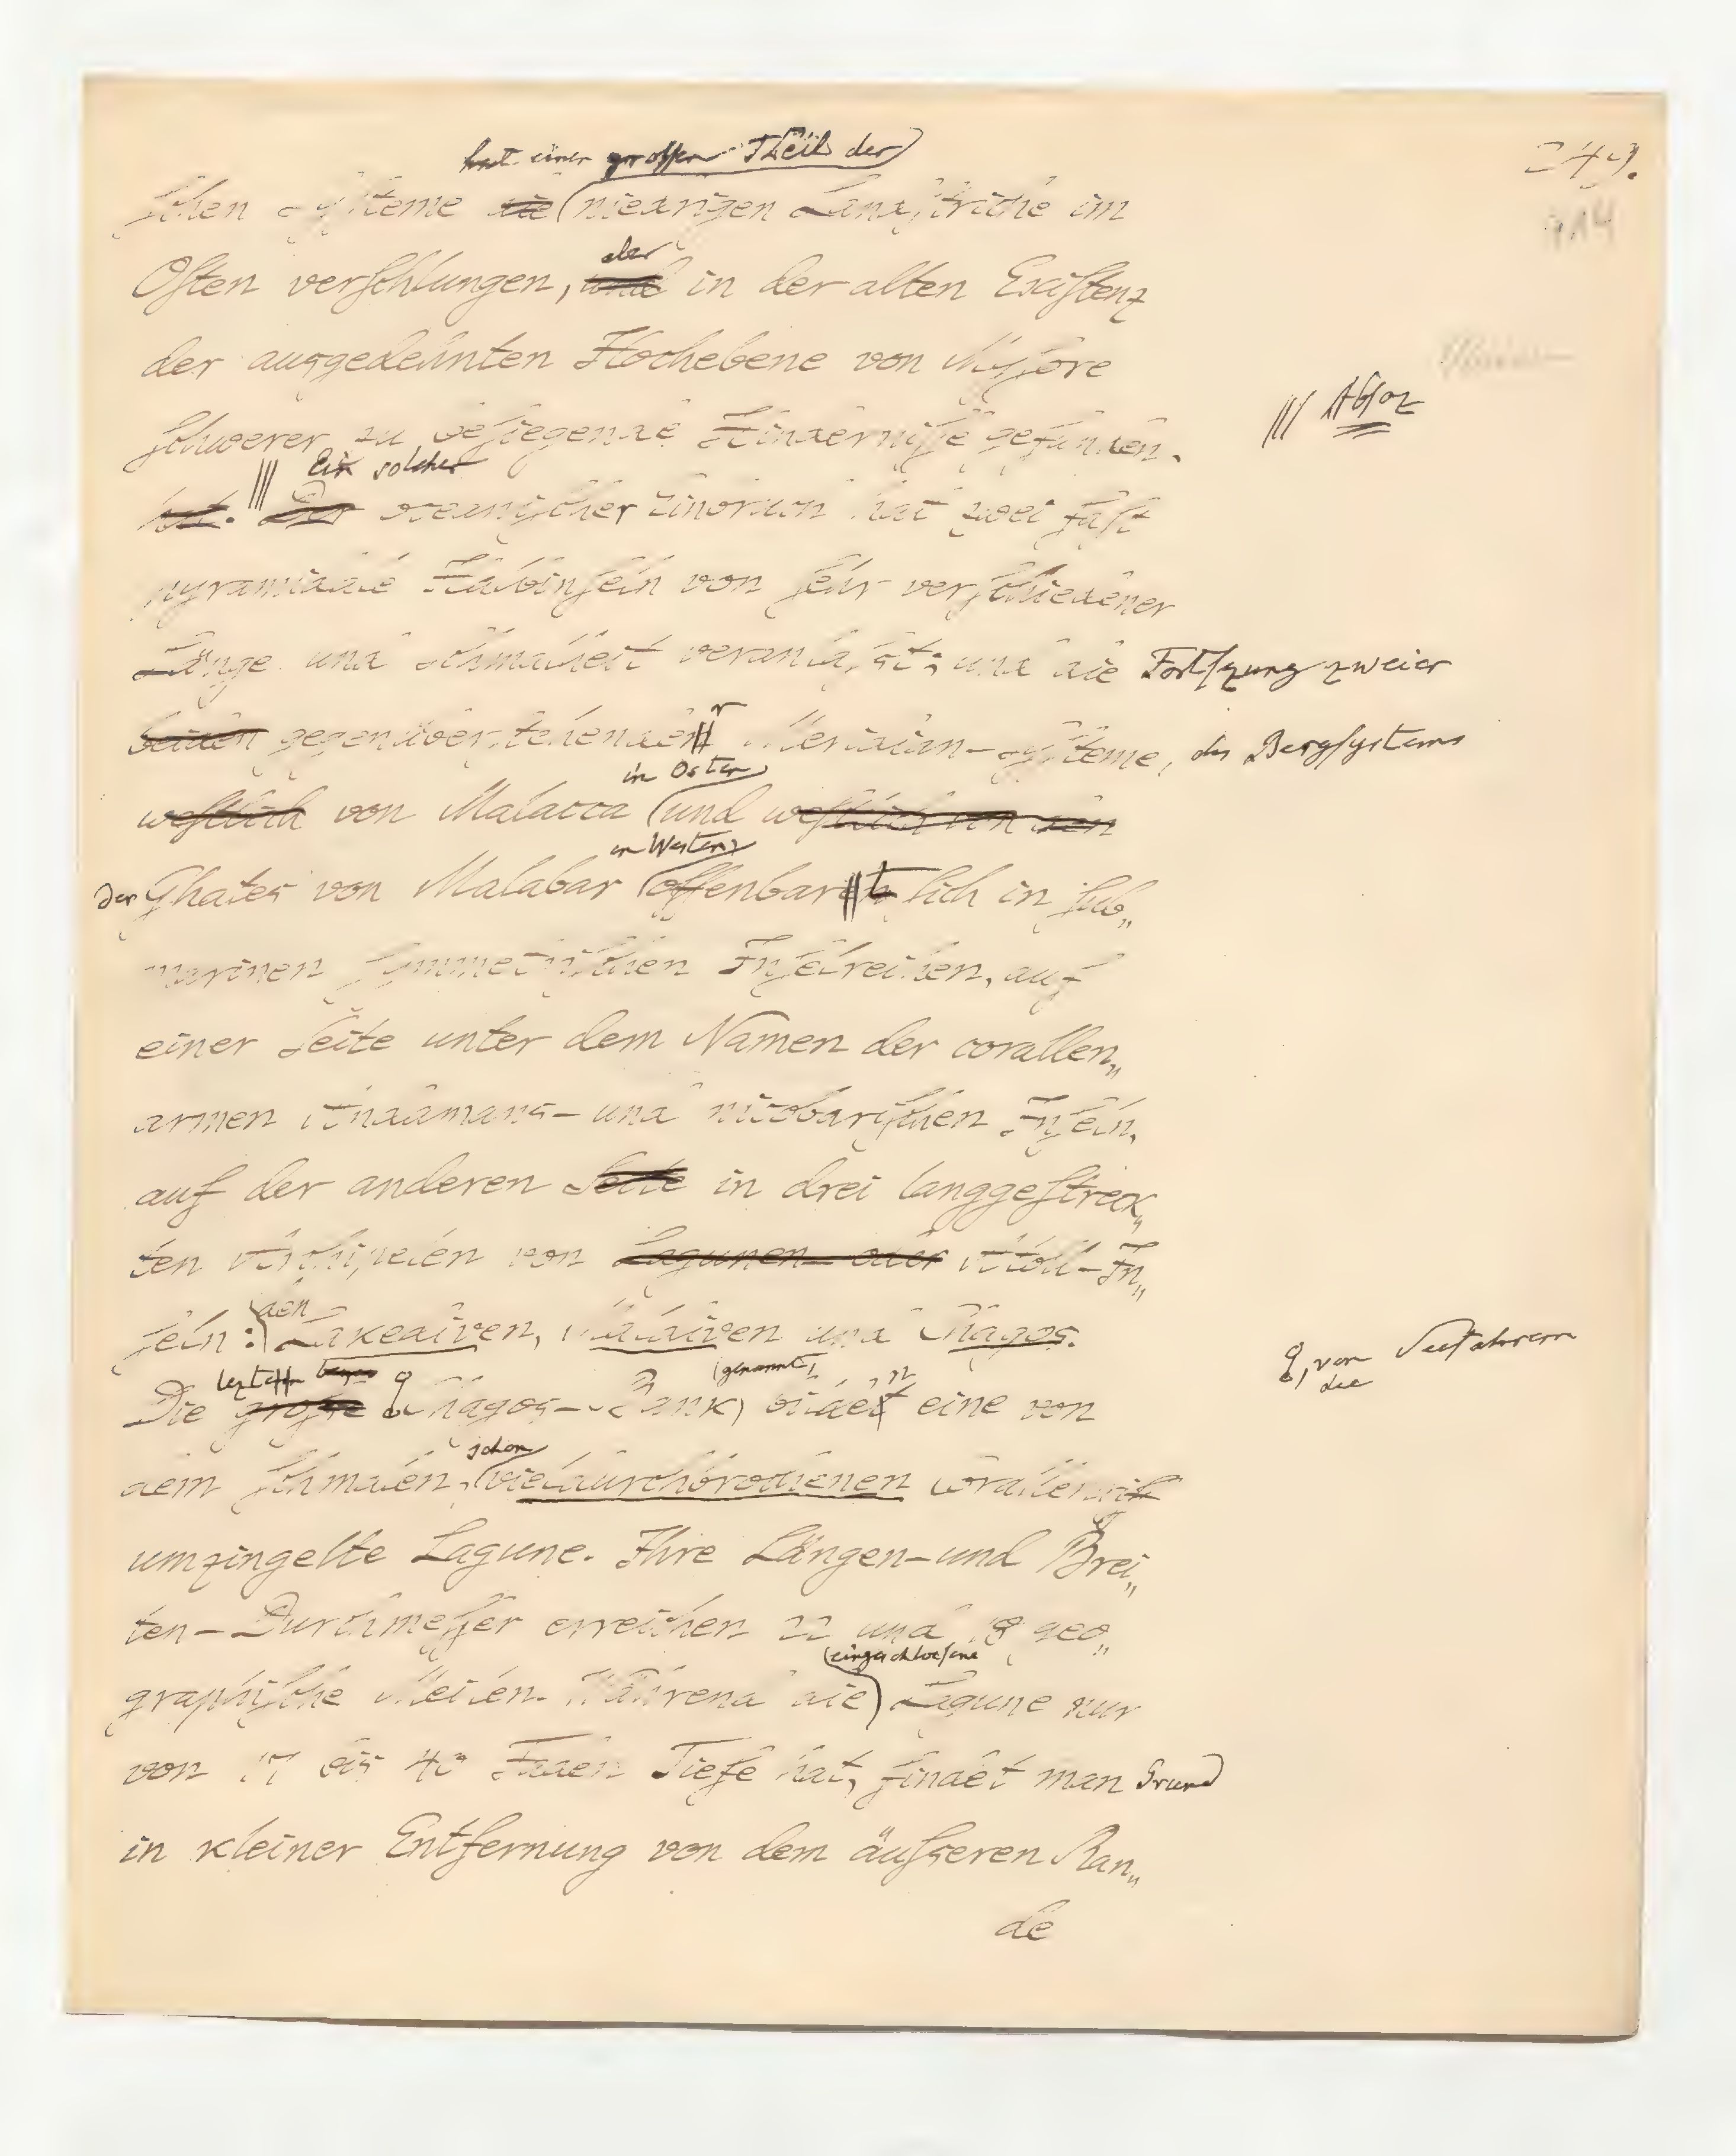 249.
914
hat einen großen Theil der
schen Systeme die niedrigen Landstriche im
aber
Osten verschlungen, und in der alten Existenz
der ausgedehnten Hochebene von Mysore
schwerer zu besiegende Hindernisse gefunden.
||| Absaz
Ein solcher
hat. ||| Der oceanischer Einbruch hat zwei fast
pyramidale Halbinseln von sehr verschiedener
Länge und Schmalheit veranlaßt; und die Fortsezung zweier
beiden gegenüberstehenden Meridian-Systeme, des Bergsystems
in Osten
westlich von Malacca und westlich von den
in Westen,
der Ghates von Malabar offenbart sich in sub„
marinen symmetrischen Inselreihen, auf
einer Seite unter dem Namen der corallen„
armen Andamans- und nicobarischen Inseln,
auf der anderen Seite in drei langgestreck„
ten Archipelen von Lagunen- oder Atoll-In„
den
seln: Lakediven, Malediven und Chagos.
, von Seefahrern
die
genannt,
Die große Chagos-Bank, bildet eine von
schon
dem schmalen, vieldurchbrochenen Corallenrif
umzingelte Lagune. Ihre Längen- und Brei„
ten-Durchmesser erreichen 22 und 18 geo„
eingeschlossene
graphische Meilen. Während die Lagune nur
von 17 bis 40 Faden Tiefe hat, findet man Grund
in kleiner Entfernung von dem äußeren Ran„
de